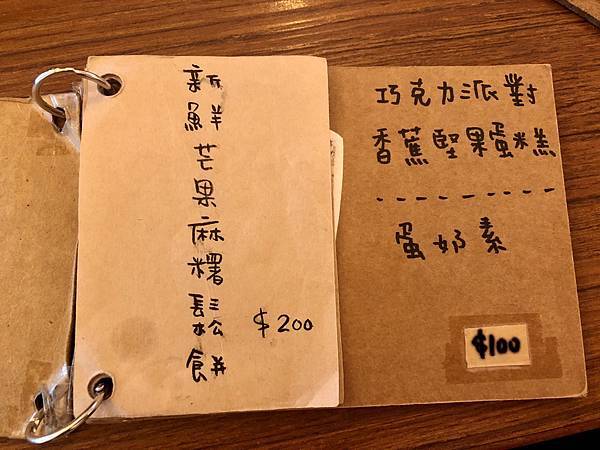 新鮮芒果麻糬鬆餅
$200
巧克力派對
香蕉堅果蛋糕
蛋奶素
$100